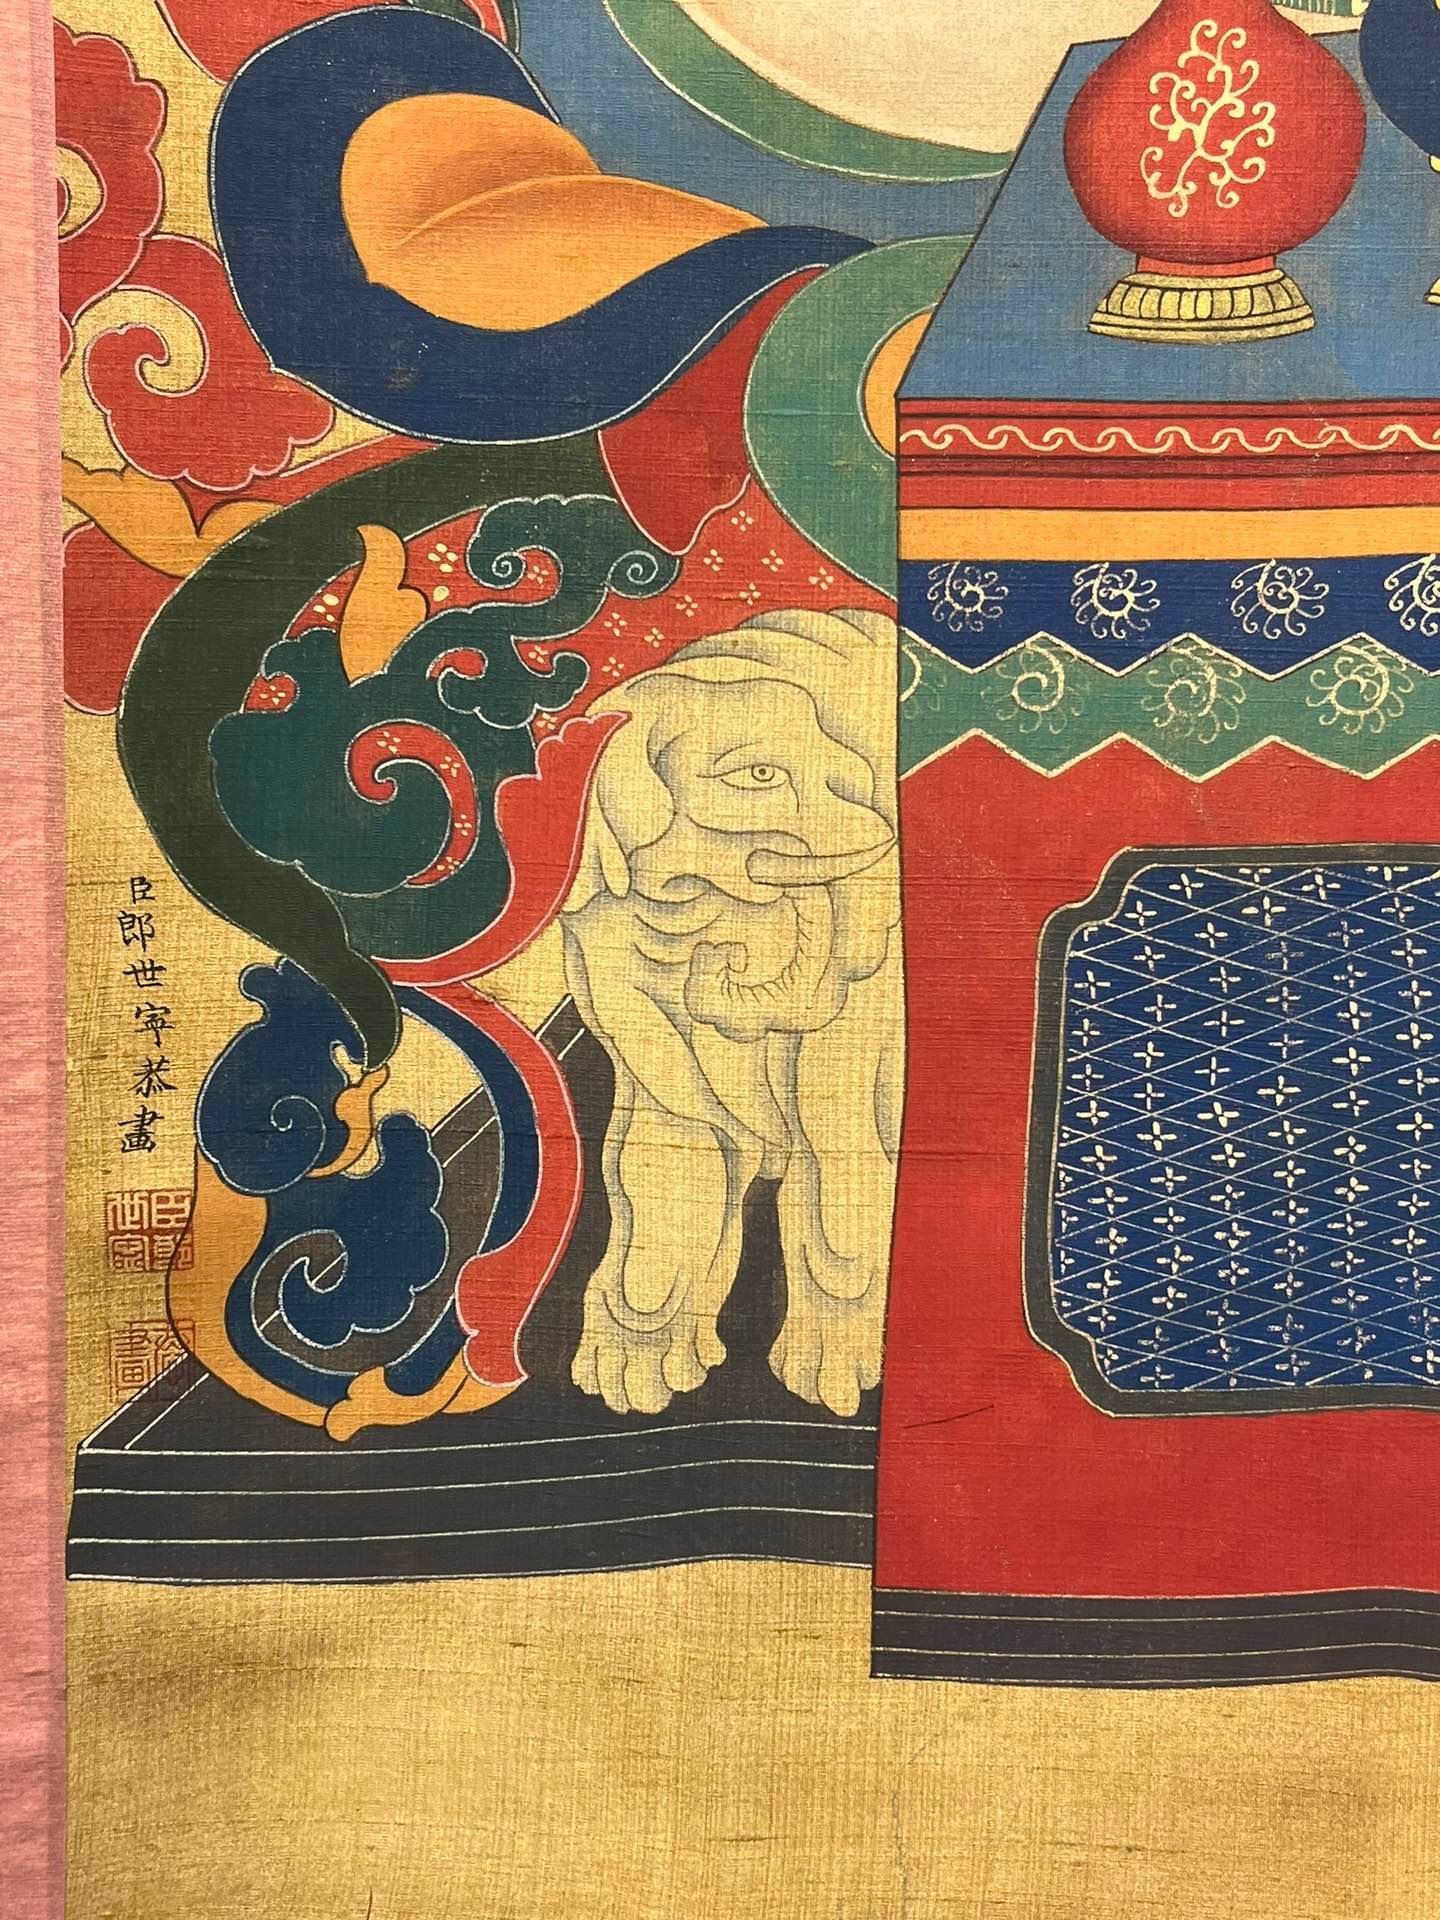 臣郎世寧恭畫
臣郎世寧
恭畫